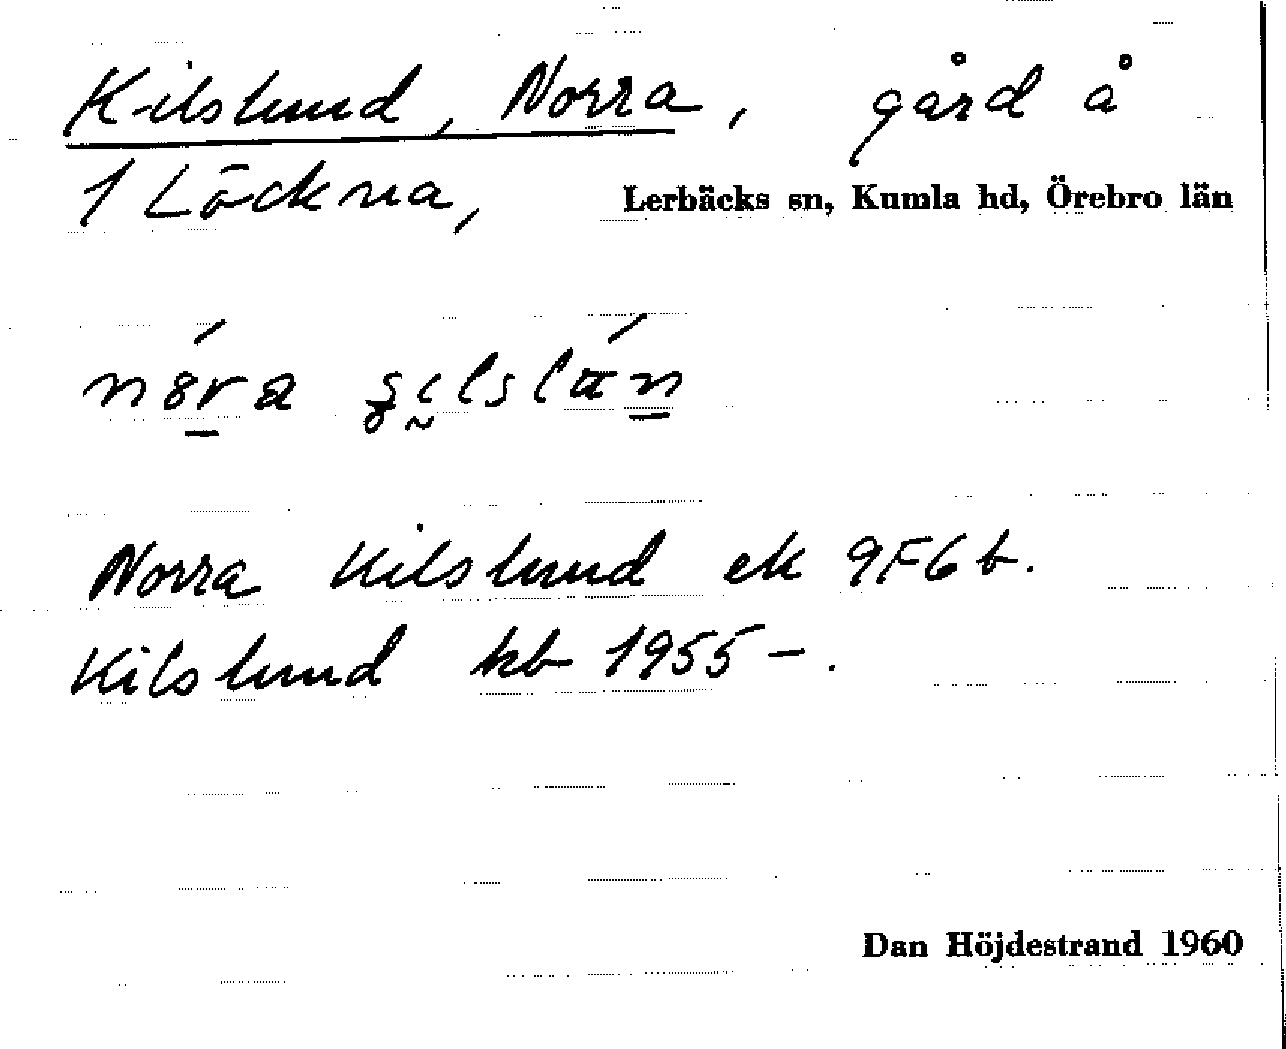 Kilslund, Norra, gård å
1 Löckna, Lerbäcks sn, Kumla hd, Örebro län
Norra Kilslund ek 9F6b.
Kilslund kb 1955-.
Dan Höjdestrand 1960